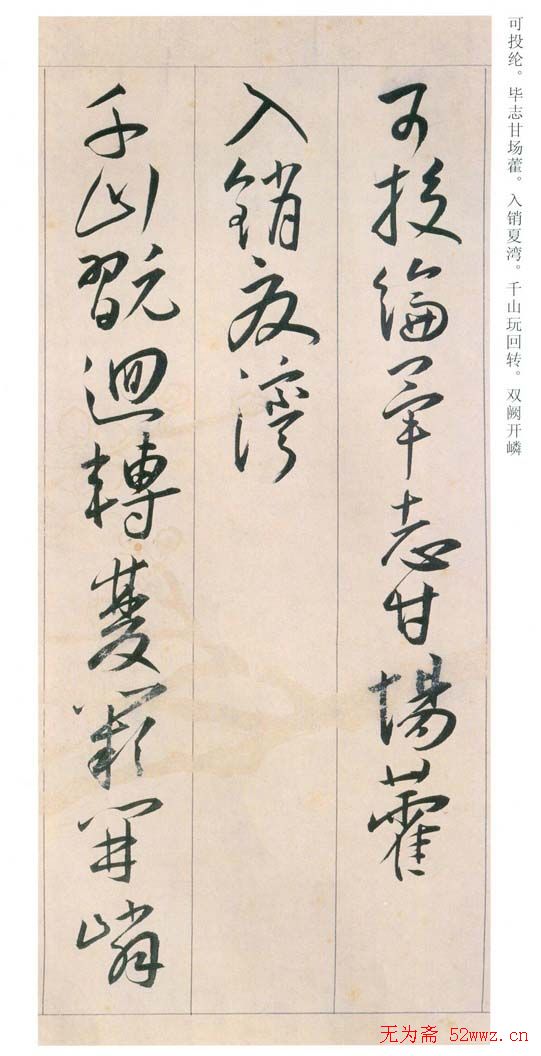 可投纶。毕志甘场藿。入销夏湾。千山玩回转。双阙开嶙
可投綸畢志甘場藿
入銷夏灣
千山翫迴轉雙闕開嶙
无为斋 52wwz.cn